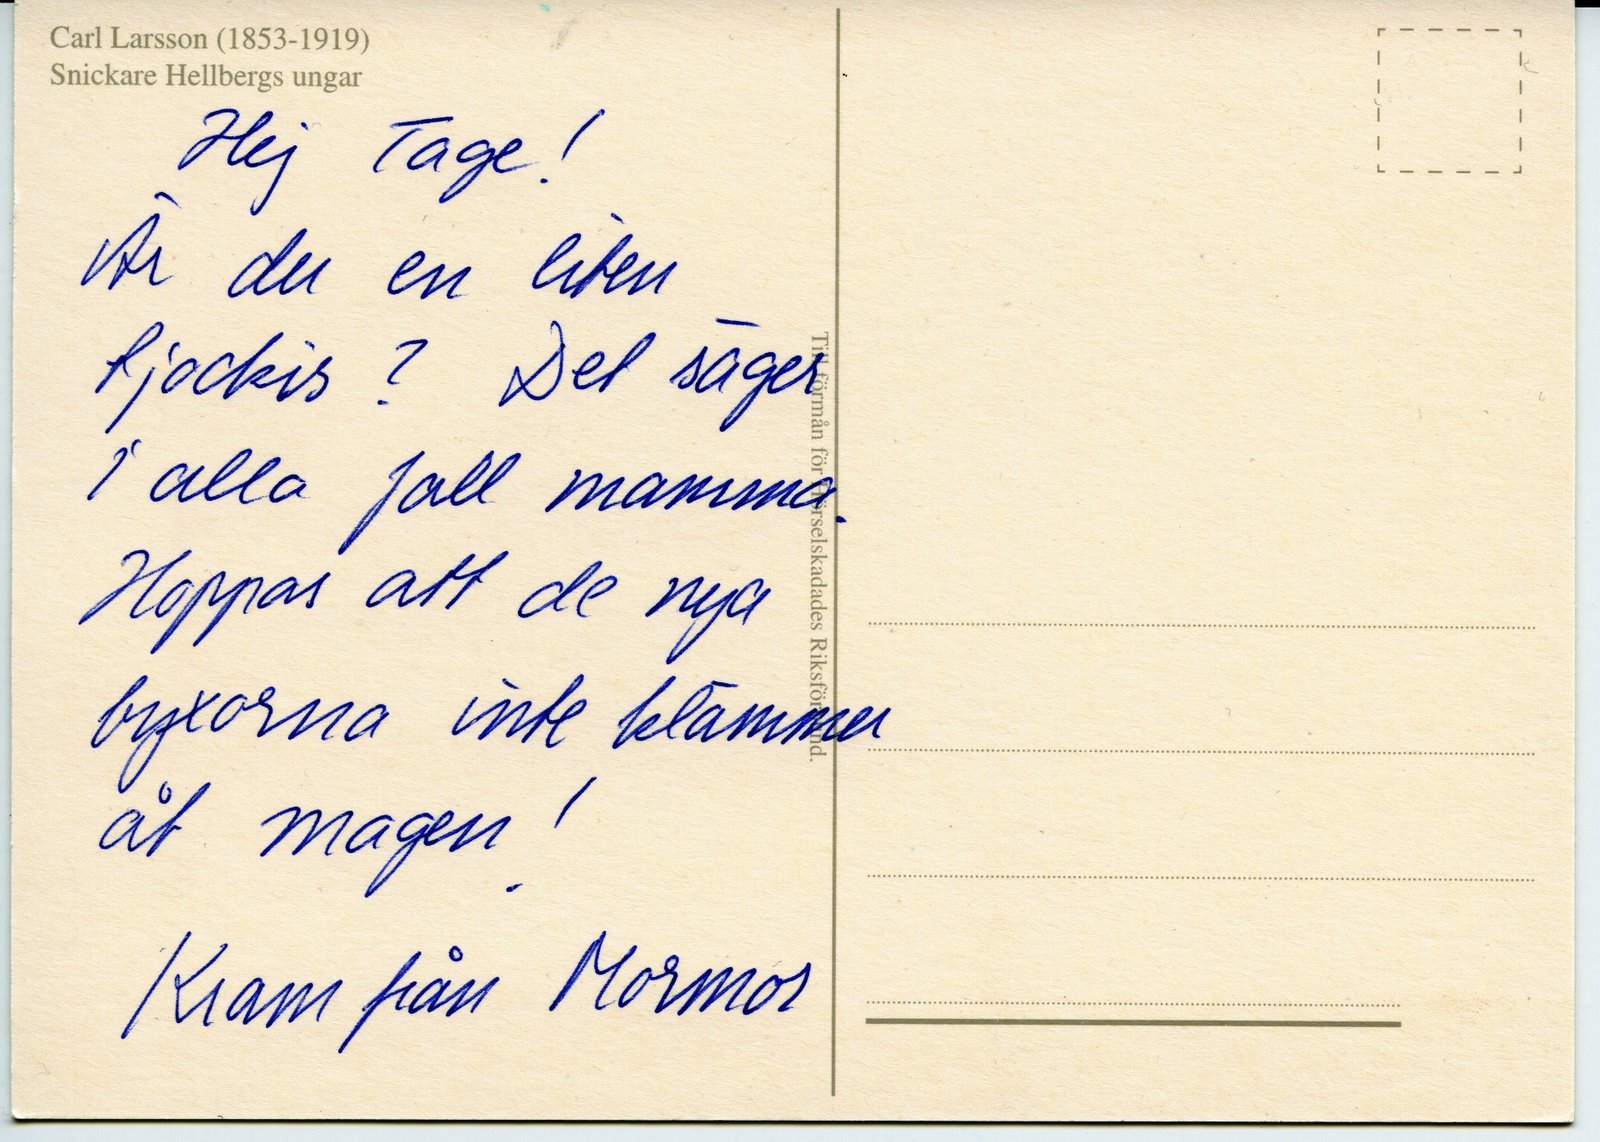 Carl Larsson (1853-1919)
Snickare Hellbergs ungar
Hej Tage!
Är du en liten
tjockis? Det säger
i alla fall mamma.
Hoppas att de nya
byxorna inte klämmer
åt magen!
Kram från Mormor
Till förmån för Hörselskadades Riksförbund.